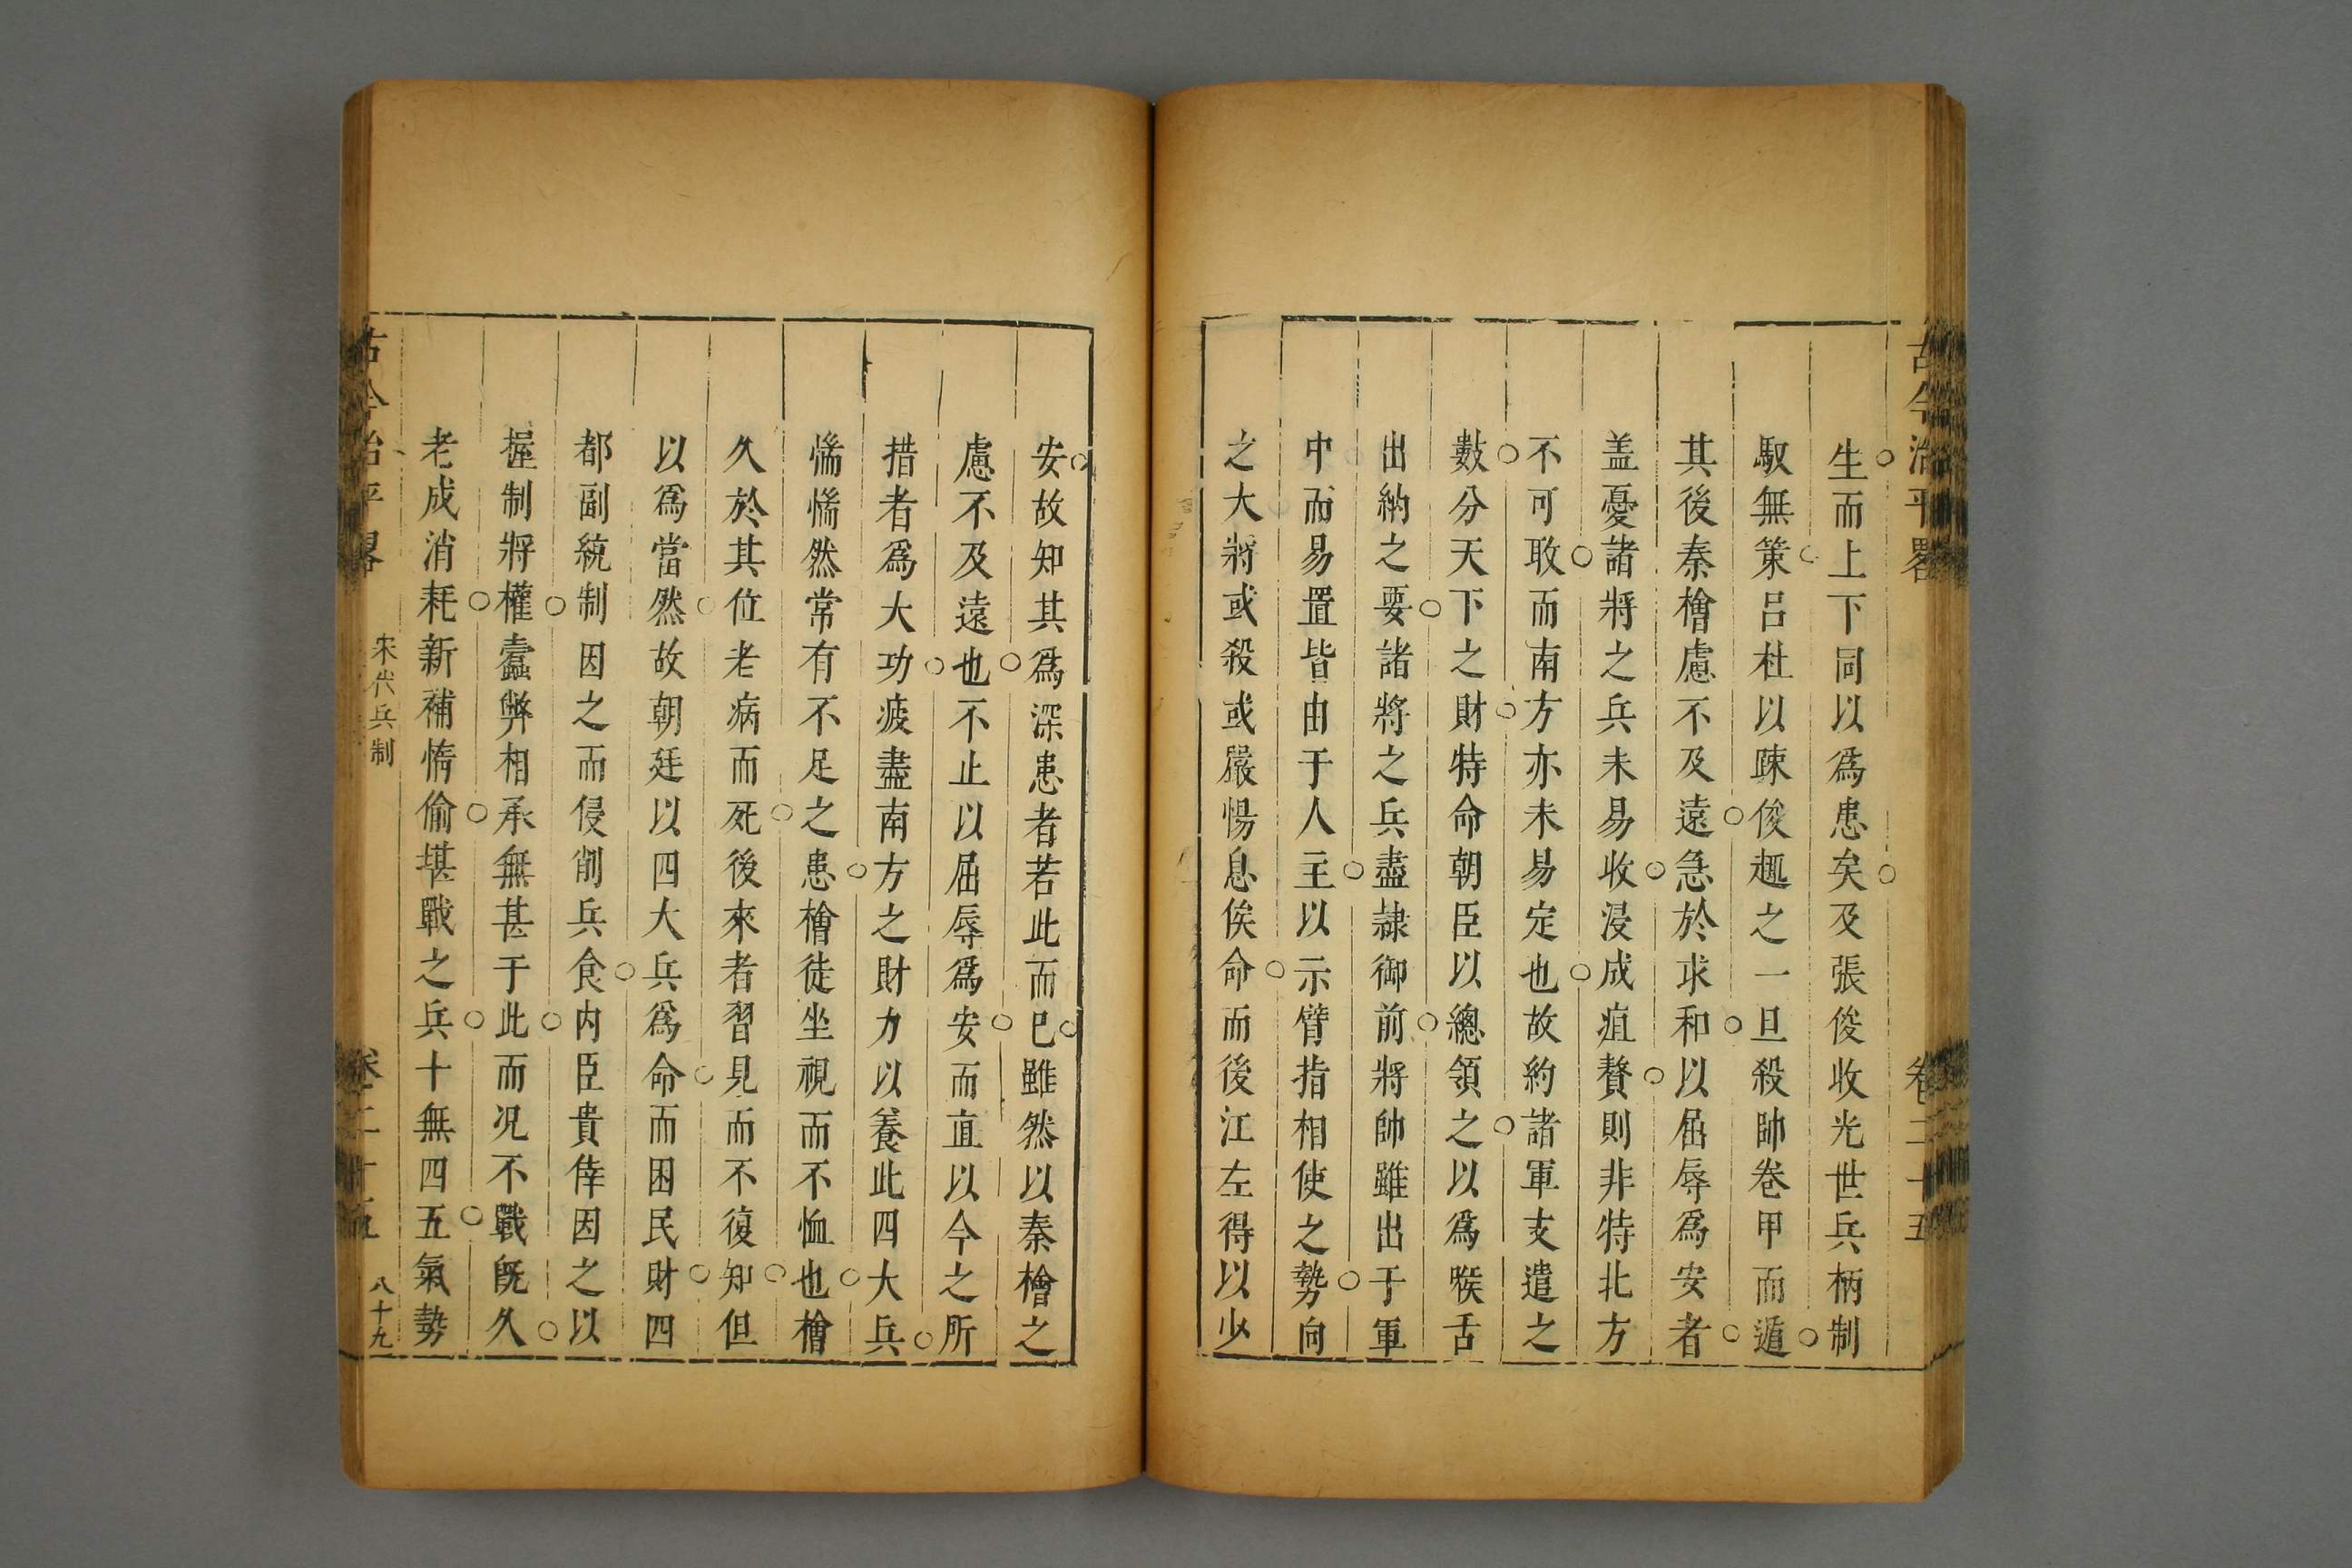 古今治平畧
卷二十五
生而上下同以爲患矣及張俊收光世兵柄制
馭無策呂杜以疎俊趣之一旦殺帥卷甲而遁
其後秦檜慮不及遠急於求和以屈辱爲安者
盖憂諸將之兵未易收浸成疽贅則非特北方
不可敢而南方亦未易定也故約諸軍支遣之
數分天下之財特命朝臣以總領之以爲喉舌
出納之要諸將之兵盡隷御前將帥雖出于軍
中而易置皆由于人主以示臂指相使之勢向
之大將或殺或嚴惕息俟命而後江左得以少
安故知其爲深患者若此而巳雖然以秦檜之
慮不及遠也不止以屈辱爲安而直以今之所
措者爲大功疲盡南方之財力以養此四大兵
惴惴然常有不足之患檜徒坐視而不恤也檜
久於其位老病而死後來者習見而不復知但
以爲當然故朝廷以四大兵爲命而困民財四
都副統制因之而侵削兵食内臣貴倖因之以
握制將權蠹弊相承無甚于此而况不戰旣久
老成消耗新補惰偷堪戰之兵十無四五氣勢
古今治平畧
宋代兵制
卷二十五
八十九